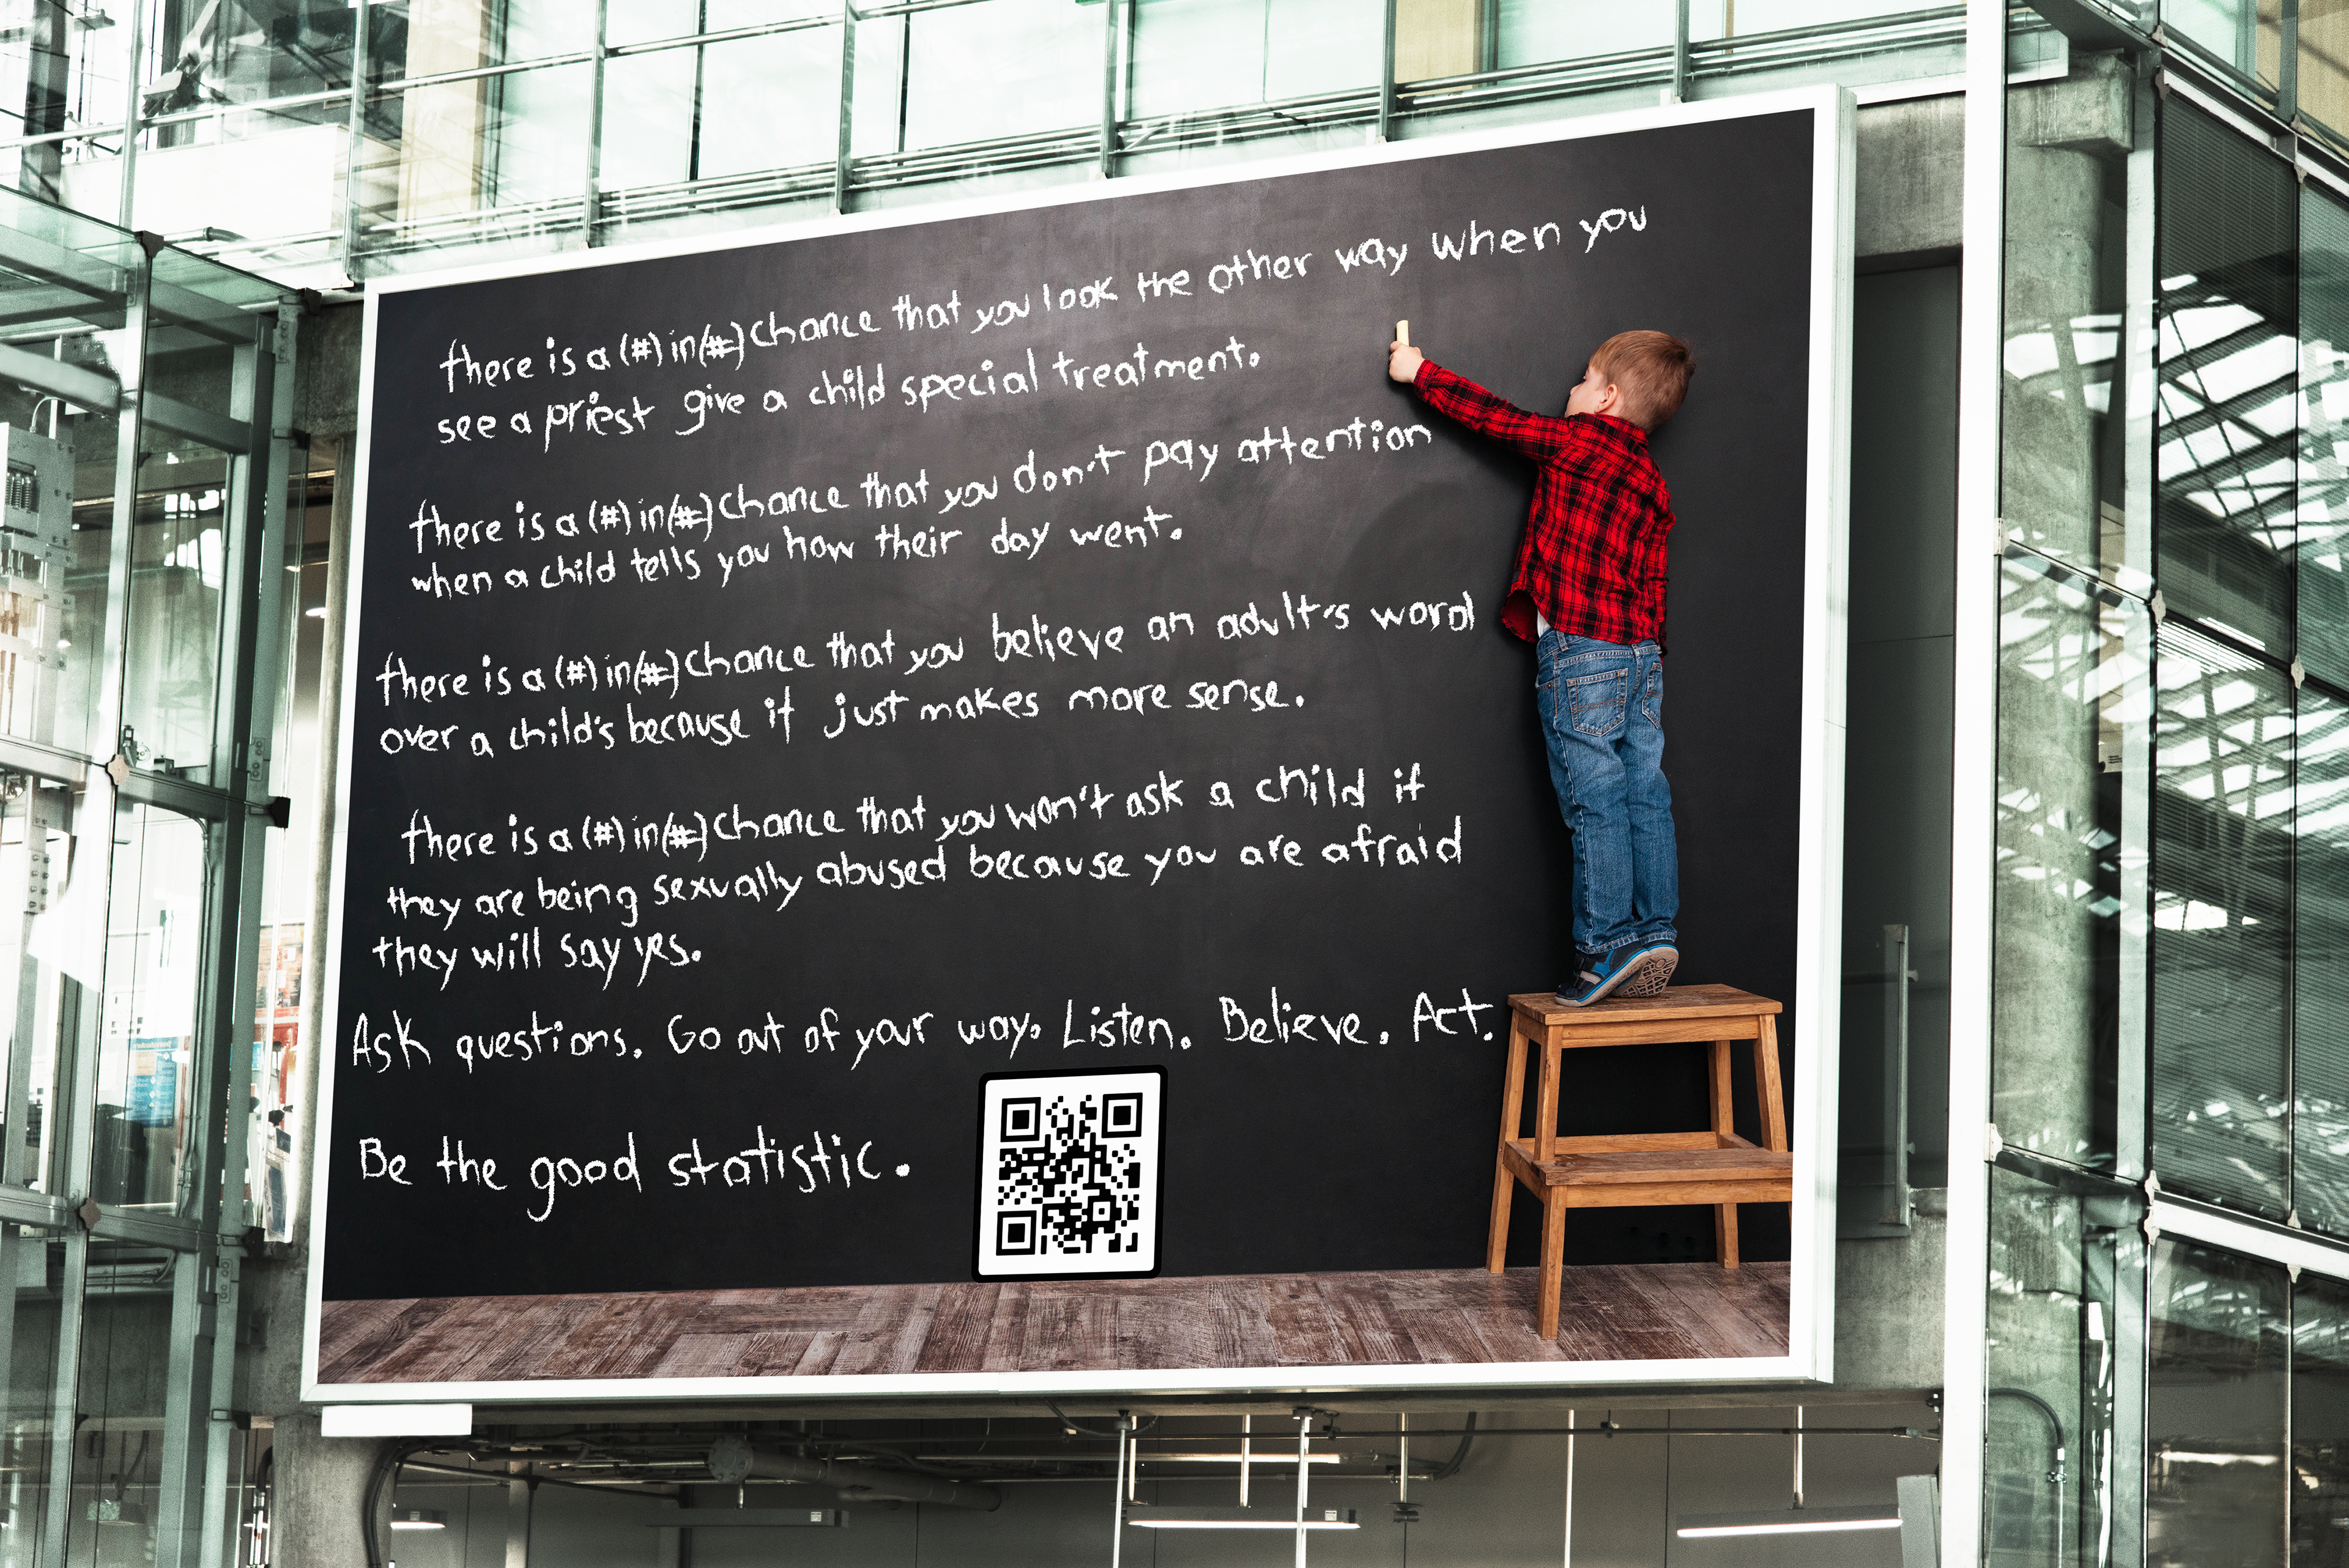 there is a (#) in (#) chance that you look the other way when you
see a priest give a child special treatment.
there is a (#) in (#) chance that you don't pay attention
when a child tells you how their day went.
there is a (#) in (#) chance that you believe an adult's word
over a child's because it just makes more sense.
there is a (#) in (#) chance that you won't ask a child if
they are being sexually abused because you are afraid
they will say yes.
Ask questions. Go out of your way. Listen. Believe. Act.
Be the good statistic.